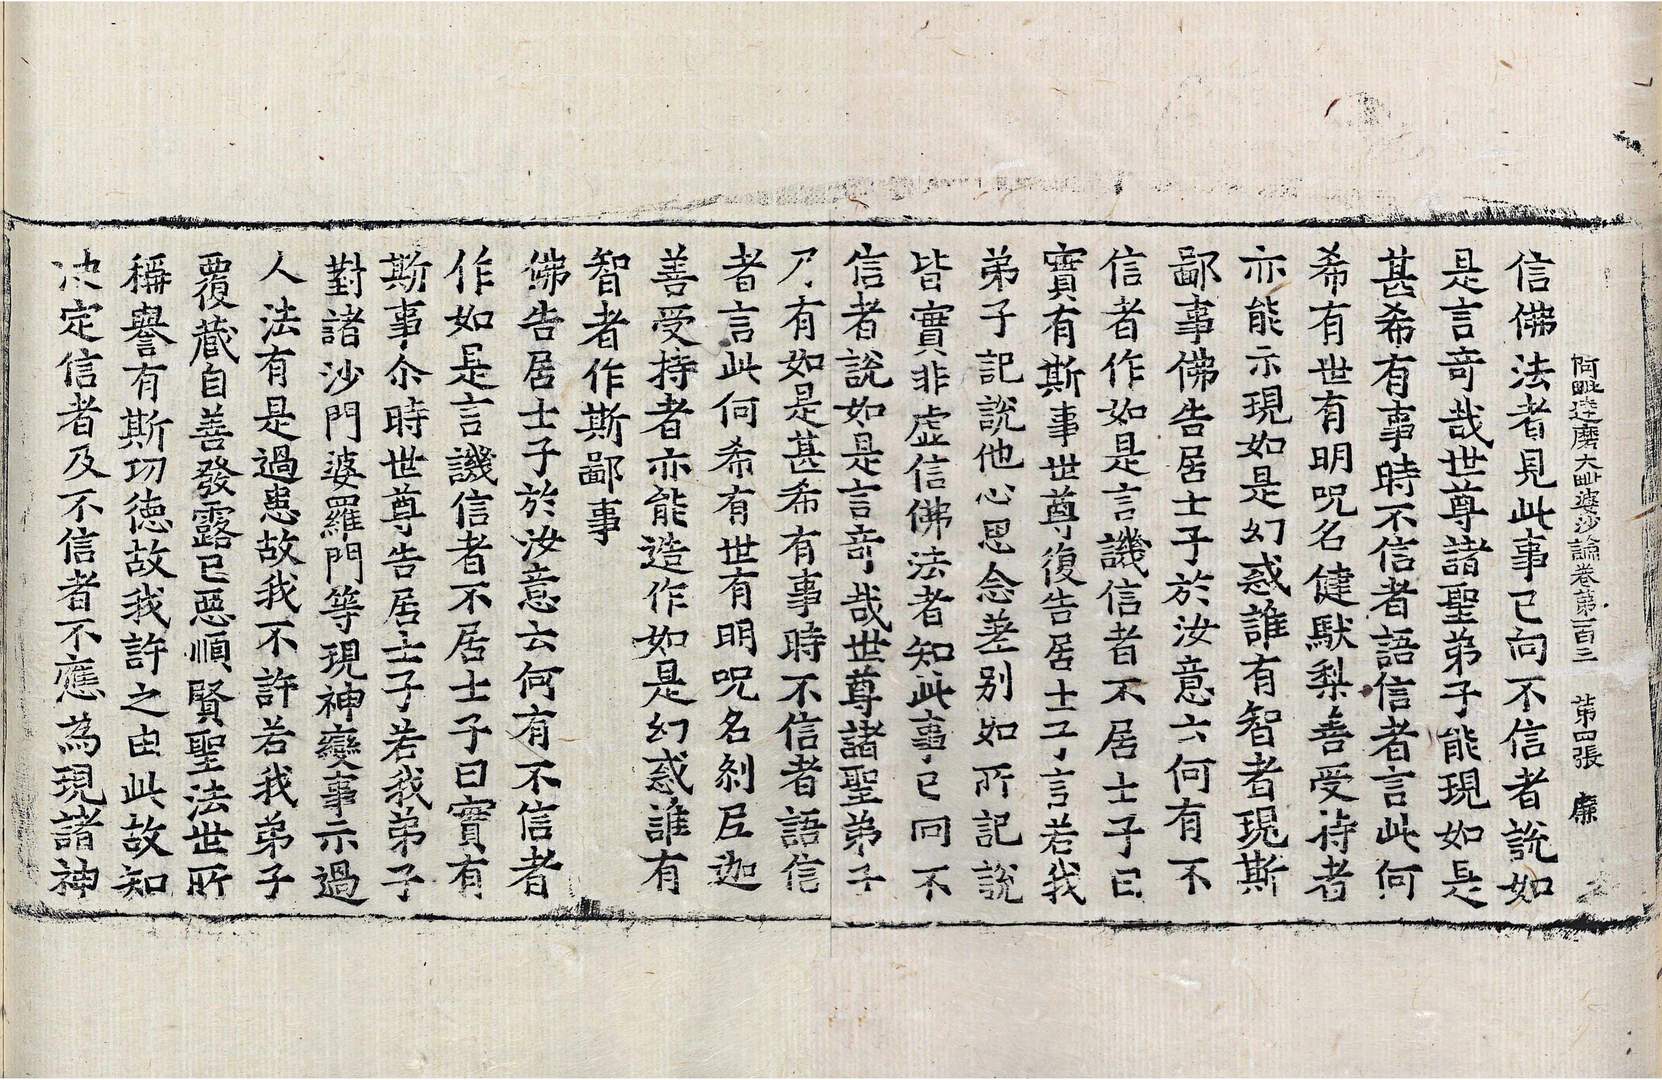 阿毗達磨大毗婆沙論卷第一百三 第四張 廉
信佛法者見此事已向不信者說如
是言奇哉世尊諸聖弟子能現如是
甚希有事時不信者語信者言此何
希有世有明呪名健馱梨善受持者
亦能示現如是幻惑誰有智者現斯
鄙事佛告居士子於汝意云何有不
信者作如是言譏信者不居士子曰
實有斯事世尊復告居士子言若我
弟子記說他心思念差別如所記說
皆實非虛信佛法者知此事已向不
信者說如是言奇哉世尊諸聖弟子
乃有如是甚希有事時不信者語信
者言此何希有世有明呪名剎尼迦
善受持者亦能造作如是幻惑誰有
智者作斯鄙事
佛告居士子於汝意云何有不信者
作如是言譏信者不居士子曰實有
斯事尒時世尊告居士子若我弟子
對諸沙門婆羅門等現神變事示過
人法有是過患故我不許若我弟子
覆藏自善發露已惡順賢聖法世所
稱譽有斯功德故我許之由此故知
决定信者及不信者不應為現諸神